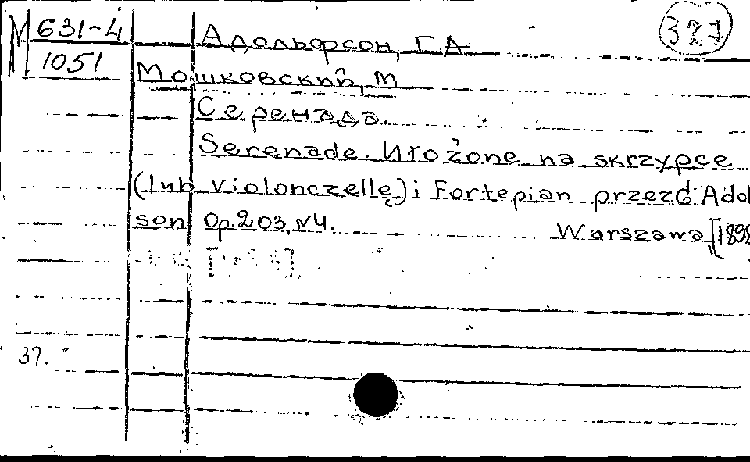 М 631-4
1051
327
Адольфсон, Г.А
Мошковский, М
Серенада.
Serenade. Ułożone na skrzypce
(lub violonczellę) i Fortepian przez G. Adol
son Op. 203, N4. Warszawa, [189
37.